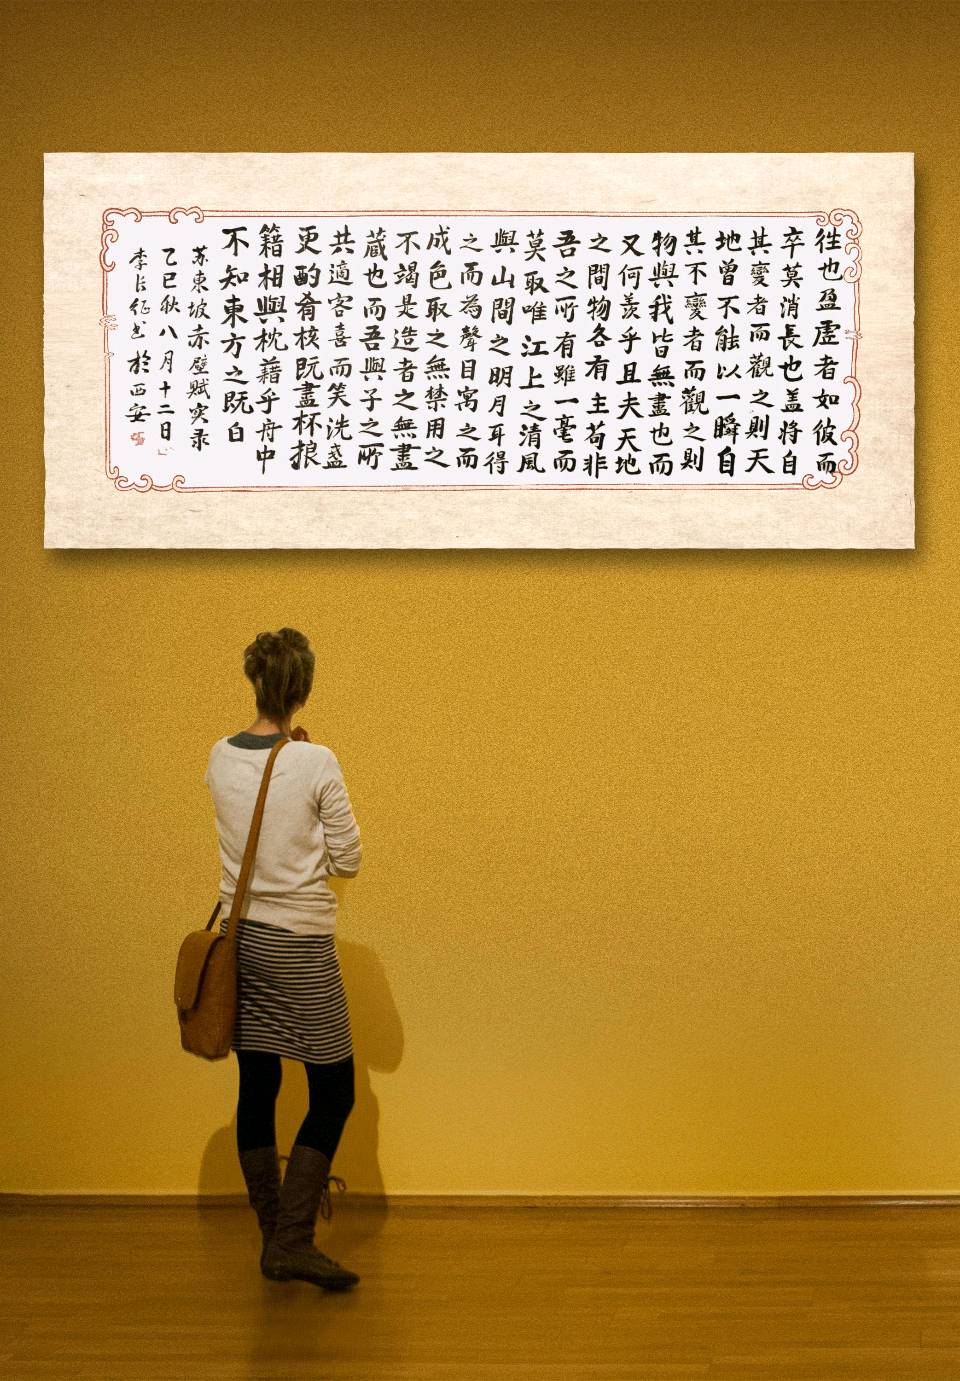 往也盈虚者如彼而
卒莫消長也盖将自
其變者而觀之則天
地曾不能以一瞬自
其不變者而觀之則
物與我皆無盡也而
又何羨乎且夫天地
之間物各有主苟非
吾之所有雖一毫而
莫取唯江上之清風
與山間之明月耳得
之而為聲目寓之而
成色取之無禁用之
不竭是造者之無盡
蔵也而吾與子之所
共適客喜而笑洗盏
更酌肴核既盡杯狼
籍相與枕藉乎舟中
不知東方之既白
苏東坡赤壁賦实录
乙巳秋八月十二日
李长征书於西安